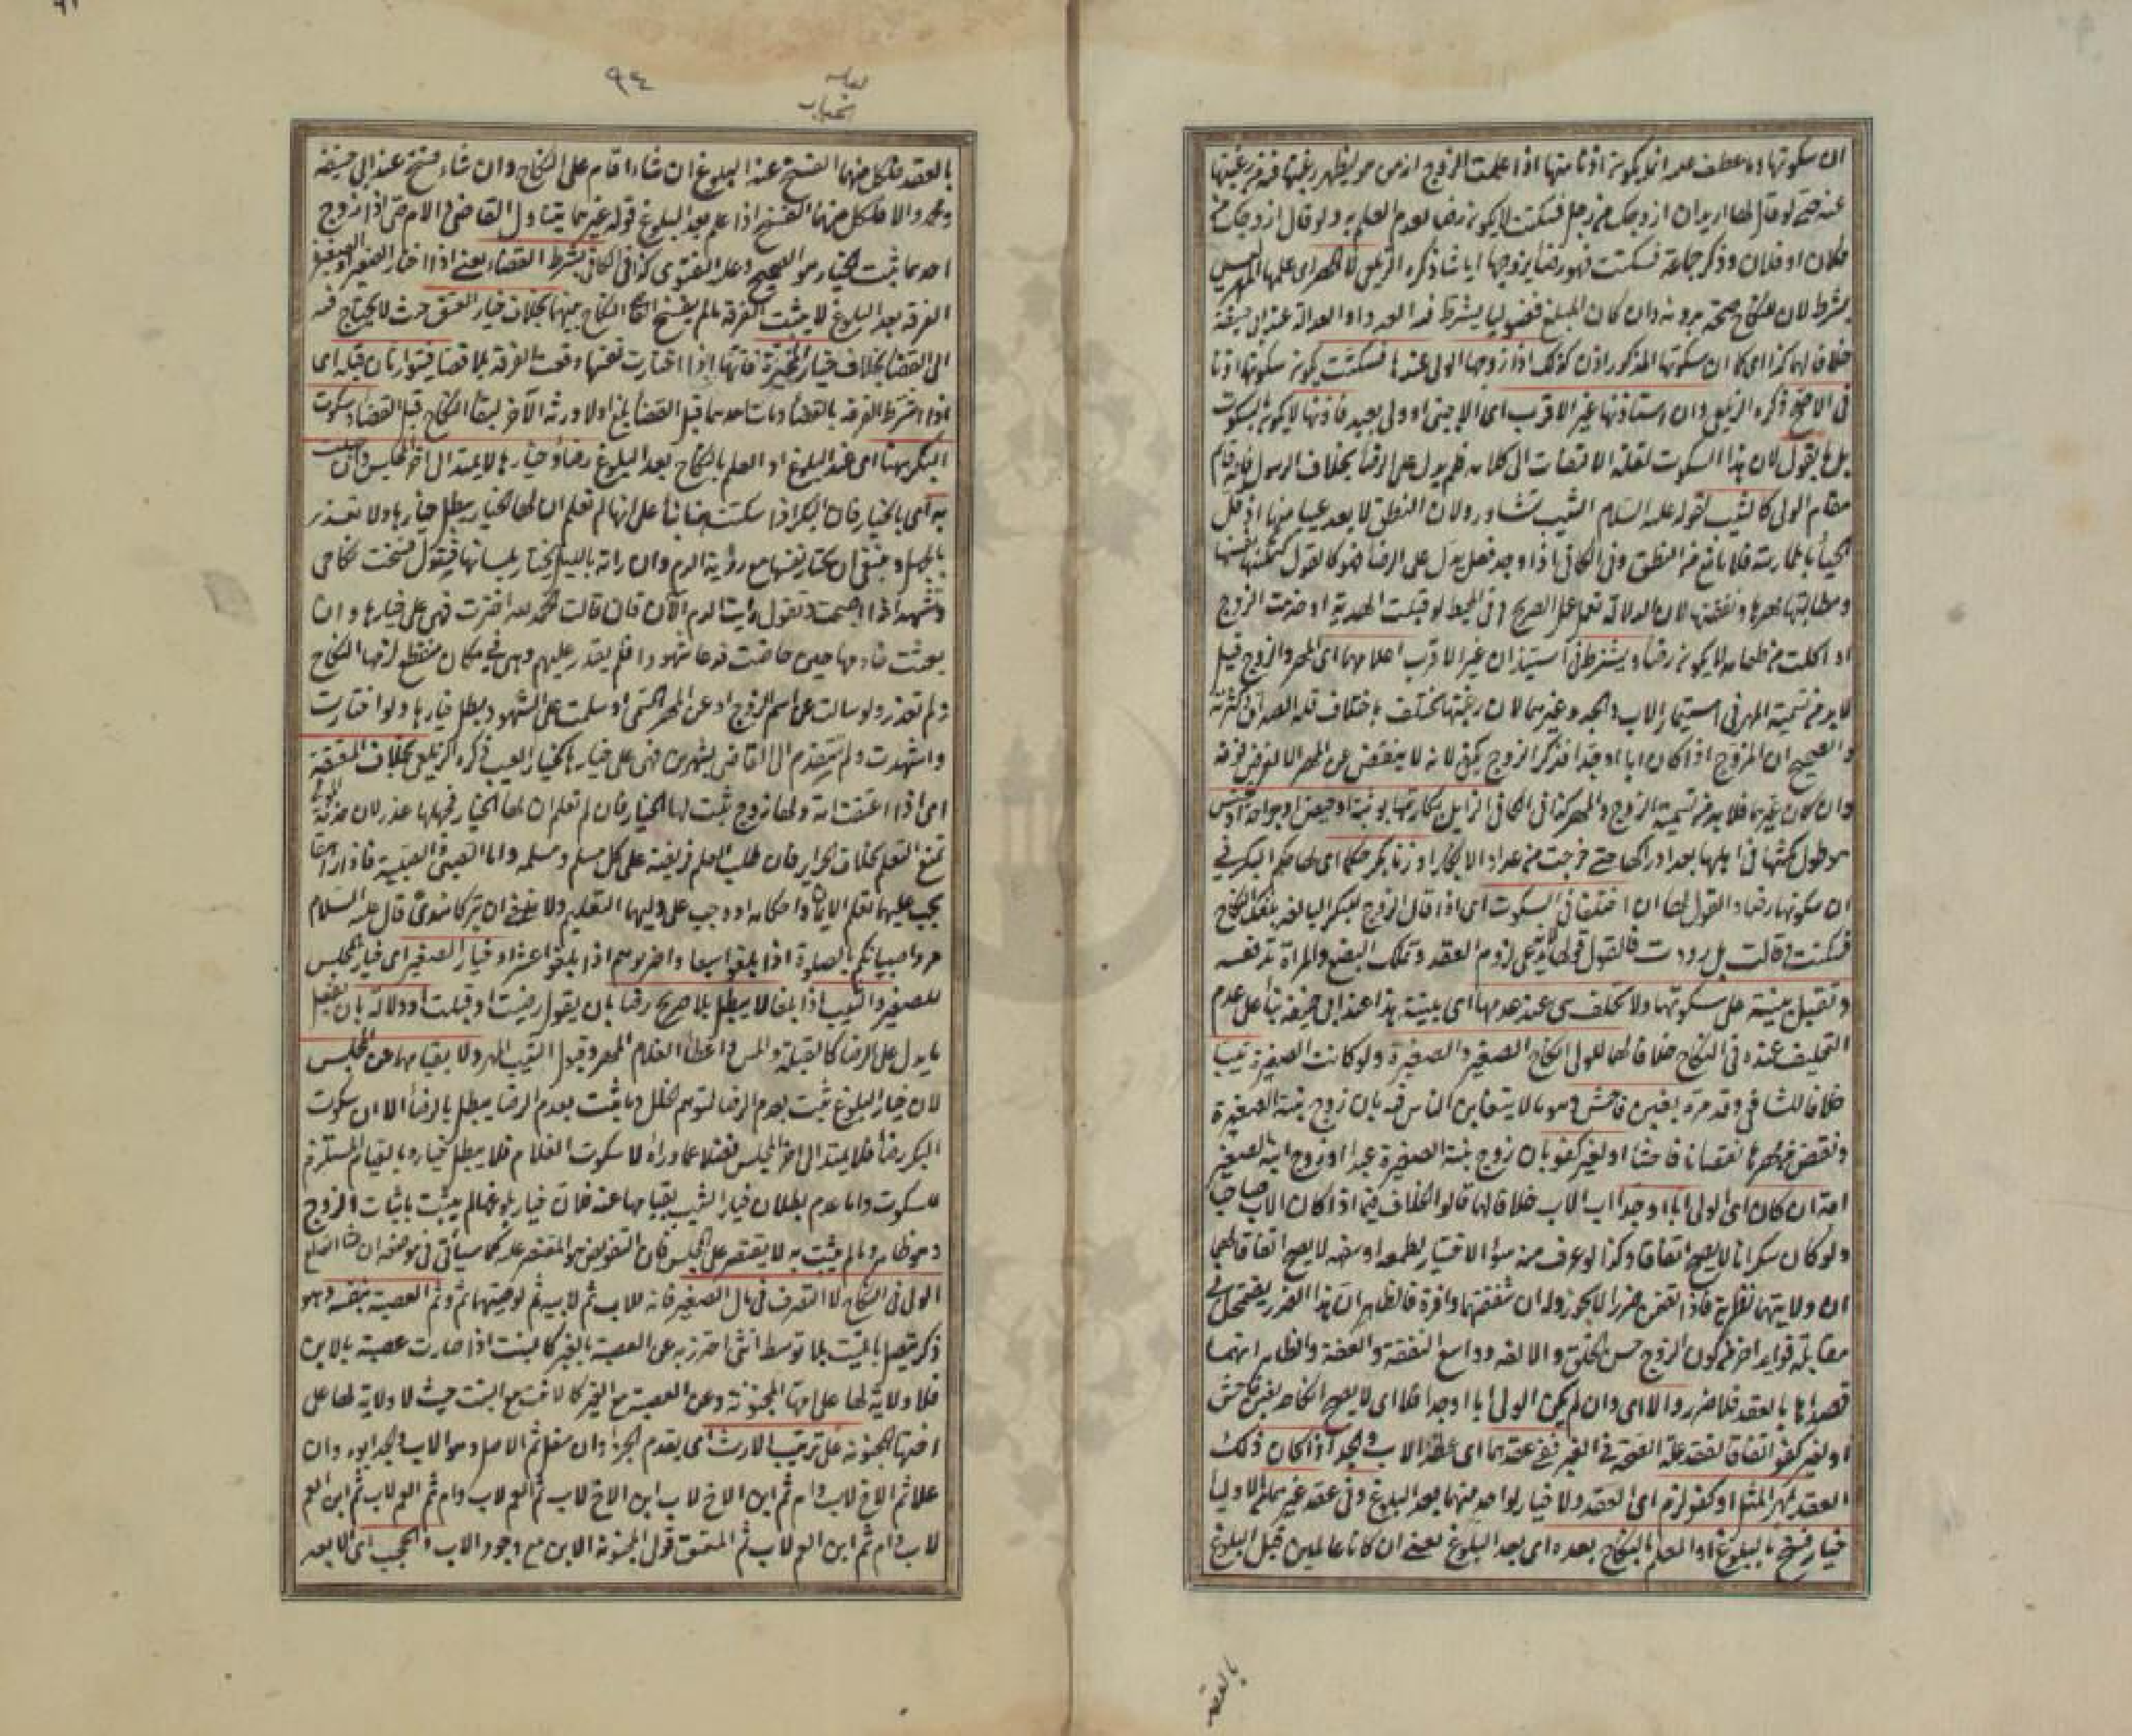 ان سكوتها وما عطف عليه انما يكون اذنا منها اذا علمت الزوج انه من هو ليظهر رغبتها فيه من رغبتها
عنه حتى لو قال لها اريد ان ازوجك من رجل فسكتت لا يكون رضا لعدم العلم به ولو قال ازوجك من
فلان او فلان وذكر جماعة فسكتت فهو رضا يزوجها ايا شا ذكره الزيلعي لا المهر اى علمها المهر ليس
بشرط لان للنكاح صحة بدونه وان كان المبلغ فضوليا يشترط فيه العدد او العدالة عند ابى حنيفة
خلافا لهما كذا اى كما ان سكوتها المذكور اذن كذلك اذا زوجها الولى عندها فسكتت يكون سكوتها اذنا
فى الاصح ذكره الزيلعي وان استأذنها غير الاقرب اى الاجنبى او ولى بعيد فاذنها لا يكون بالسكوت
بل بالقول لان هذا السكوت لقلة الالتفات الى كلامه فلم يدل على الرضا بخلاف الرسول فانه قائم
مقام الولى كالثيب لقوله عليه السلام الثيب تشاور ولان النطق لا يعد عيبا منها اذ قل
الحيأ بالممارسة فلا مانع من النطق وفى الكافى اذا وجد فعل يدل على الرضا فهو كالقول كتمكينها نفسها
ومطالبتها مهرها ونفقتها لان الدلالة تعمل عمل الصريح وفى المحيط لو قبلت الهدية او خدمت الزوج
او اكلت من طعامه لا يكون رضا ويشترط فى استيذان غير الاقرب اعلامها اى المهر والزوج قيل
لا بد من تسمية المهر فى استيمار الاب والجد وغيرهما لان رغبتها تختلف باختلاف قلة الصداق وكثرته
والصحيح ان المزوج اذا كان ابا او جدا فذكر الزوج يكفى لانه لا ينقص عن المهر الا لغرض فوقه
وان كان غيرهما فلا بد من تسمية الزوج والمهر كذا فى الكافى الزايل بكارتها بوثبة او حيض او جراحة او تعنيس
هو طول مكثها فى اهلها بعد ادراكها حتى خرجت من عداد الابكار او زنا بكر حكما اى لها حكم البكر فى
ان سكوتها رضا والقول لها ان اختلفا فى السكوت اى اذا قال الزوج للبكر البالغة بلغك النكاح
فسكتت وقالت بل رددت فالقول قولها لانه يدعى لزوم العقد وتملك البضع والمرأة تدفعه
وتقبل بينته على سكوتها ولا تحلف هى عند عدمها اى بينته هذا عند ابى حنيفة بنأ على عدم
التحليف عنده فى النكاح خلافا لهما للولى انكاح الصغير والصغيرة ولو كانت الصغيرة ثيبا
خلافا للشافى وقد مر ولو بغبن فاحش وهو ما لا يتغابن الناس فيه بان زوج بنته الصغيرة
ونقص مهرها نقصانا فاحشا او لغير كفو بان زوج بنته الصغيرة عبدا او زوج ابنه الصغير
امة ان كان اى الولى ابا او جدا اب الاب خلافا لهما قالوا الخلاف فيما اذا كان الاب صاحيا
ولو كان سكرانا لا يصح اتفاقا وكذا لو عرف منه سوء الاختيار لطمعه او سفهه لا يصح اتفاقا لهما
ان ولايتهما نظرية فاذا تضمن ضررا لا يجوز وله ان شفقتهما وافرة فالظاهر ان هذا الضرر يضمحل فى
مقابلة فوايد اخر ككون الزوج حسن الخلق والالفة وواسع النفقة والعفة والظاهر انهما
قصداها بالعقد فلا ضرر والا اى وان لم يكن الولى ابا او جدا فلا اى لا يصح انكاحه بغبن فاحش
او لغير كفو اتفاقا لفقد علة الصحة فى الغير ففى عقدهما اى عقد الاب والجد اذا كان ذلك
العقد بمهر المثل او كفو لزم اى العقد ولا خيار لواحد منهما بعد البلوغ وفى عقد غيرهما من الاوليا
خيار فسخ بالبلوغ او العلم بالنكاح بعده اى بعد البلوغ يعنى ان كانا عالمين قبل البلوغ
بالعقد
٩٤
بالعقد فلكل منهما الفسخ عند البلوغ ان شاء اقام على النكاح وان شاء فسخ عند ابى حنيفة
ومحمد والا فلكل منهما الفسخ اذا علم بعد البلوغ قوله غيرهما يتناول القاضى والام حتى اذا زوج
احدهما ثبت الخيار هو الصحيح وعليه الفتوى كذا فى الكافى بشرط القضاء يعنى اذا اختار الصغير او الصغيرة
الفرقة بعد البلوغ لا يثبت الفرقة ما لم يفسخ القاضى النكاح بينهما بخلاف خيار العتق حيث لا يحتاج فيه
الى القضا بخلاف خيار المخيرة فانها اذا اختارت نفسها وقعت الفرقة بلا قضا فيتوارثان قبله اى
اذا اشترط الفرقة بالقضا ومات احدهما قبل القضا بلغ او لا ورثه الآخر لبقأ النكاح قبل القضاء وسكوت
البكر ههنا اى عند البلوغ او العلم بالنكاح بعد البلوغ رضا وخيارها لا يمتد الى اخر المجلس وان جهلت
به اى بالخيار فان البكر اذا سكتت ههنا بنأ على انها لم تعلم ان لها الخيار يبطل خيارها ولا تعذر
بالجهل وينبغى ان تختار نفسها مع رؤية الدم وان رأته بالليل تختار بلسانها فتقول فسخت نكاحى
وتشهد اذا اصبحت وتقول رأيت الدم الآن فان قالت الحمد لله اخترت فهى على خيارها وان
بعثت خادمها حين حاضت فدعا شهودا فلم يقدر عليهم وهى فى مكان منقطع لزمها النكاح
ولم تعذر ولو سالت عن اسم الزوج او عن المهر المسمى او سلمت على الشهود بطل خيارها ولو اختارت
واشهدت ولم تتقدم الى القاضى بشهرين فهى على خيارها كخيار العيب ذكره الزيلعي بخلاف المعتقة
اى اذا اعتقت امة ولها زوج ثبت لها الخيار فان لم تعلم ان لها الخيار فجهلها عذر لان خدمة المولى
تمنع التعلم بخلاف الحراير فان طلب العلم فريضة على كل مسلم ومسلمة واما الصبى والصبية فاذا راهقا
يجب عليهما تعلم الايمان واحكامه او وجب على وليهما التعليم ولا ينبغى ان يتركا سدى قال عليه السلام
مروا صبيانكم بالصلوة اذا بلغوا سبعا واضربوهم اذا بلغوا عشرا وخيار الصغير اى خيار المجلس
للصغير والثيب اذا بلغا لا يبطل بلا صريح رضا بان يقول رضيت او قبلت او دلالة بان يفعل
ما يدل على الرضا كالقبلة والمس واعطأ الغلام المهر وقبول الثيب المهر ولا بقيامها عن المجلس
لان خيار البلوغ ثبت بعدم الرضا لتوهم الخلل وما يثبت بعدم الرضا يبطل بالرضأ الا ان سكوت
البكر رضأ فلا يمتد الى اخر المجلس فضلا عما وراه لا سكوت الغلام فلا يبطل خياره بالقيام المستلزم
للسكوت واما عدم بطلان خيار الثيب بقيامها عنه فلان خيار بلوغها لم يثبت باثبات الزوج
وهو ظاهر وما لم يثبت به لا يقتصر على المجلس فان التفويض هو المقتصر عليه كما سيأتى فى موضعه ان شا الله تعالى
الولى فى النكاح لا التصرف فى مال الصغير فانه للاب ثم لابيه ثم لوصيهما ثم وثم العصبة بنفسه وهو
ذكر يتصل بالميت بلا توسط انثى احترز به عن العصبة بالغير كالبنت اذا صارت عصبة بالابن
فلا ولاية لها على امها المجنونة وعن العصبة مع الغير كالاخت مع البنت حيث لا ولاية لها على
اختها المجنونة على ترتيب الارث اى يقدم الجزء وان سفل ثم الاصل وهو الاب والجد ابوه وان
علا ثم الاخ لاب وام ثم ابن الاخ لاب ابن الاخ لاب ثم العم لاب وام ثم العم لاب ثم ابن العم
لاب وام ثم ابن العم لاب ثم المعتق قول المجنونة الابن مع وجود الاب والحجب اى الابعد